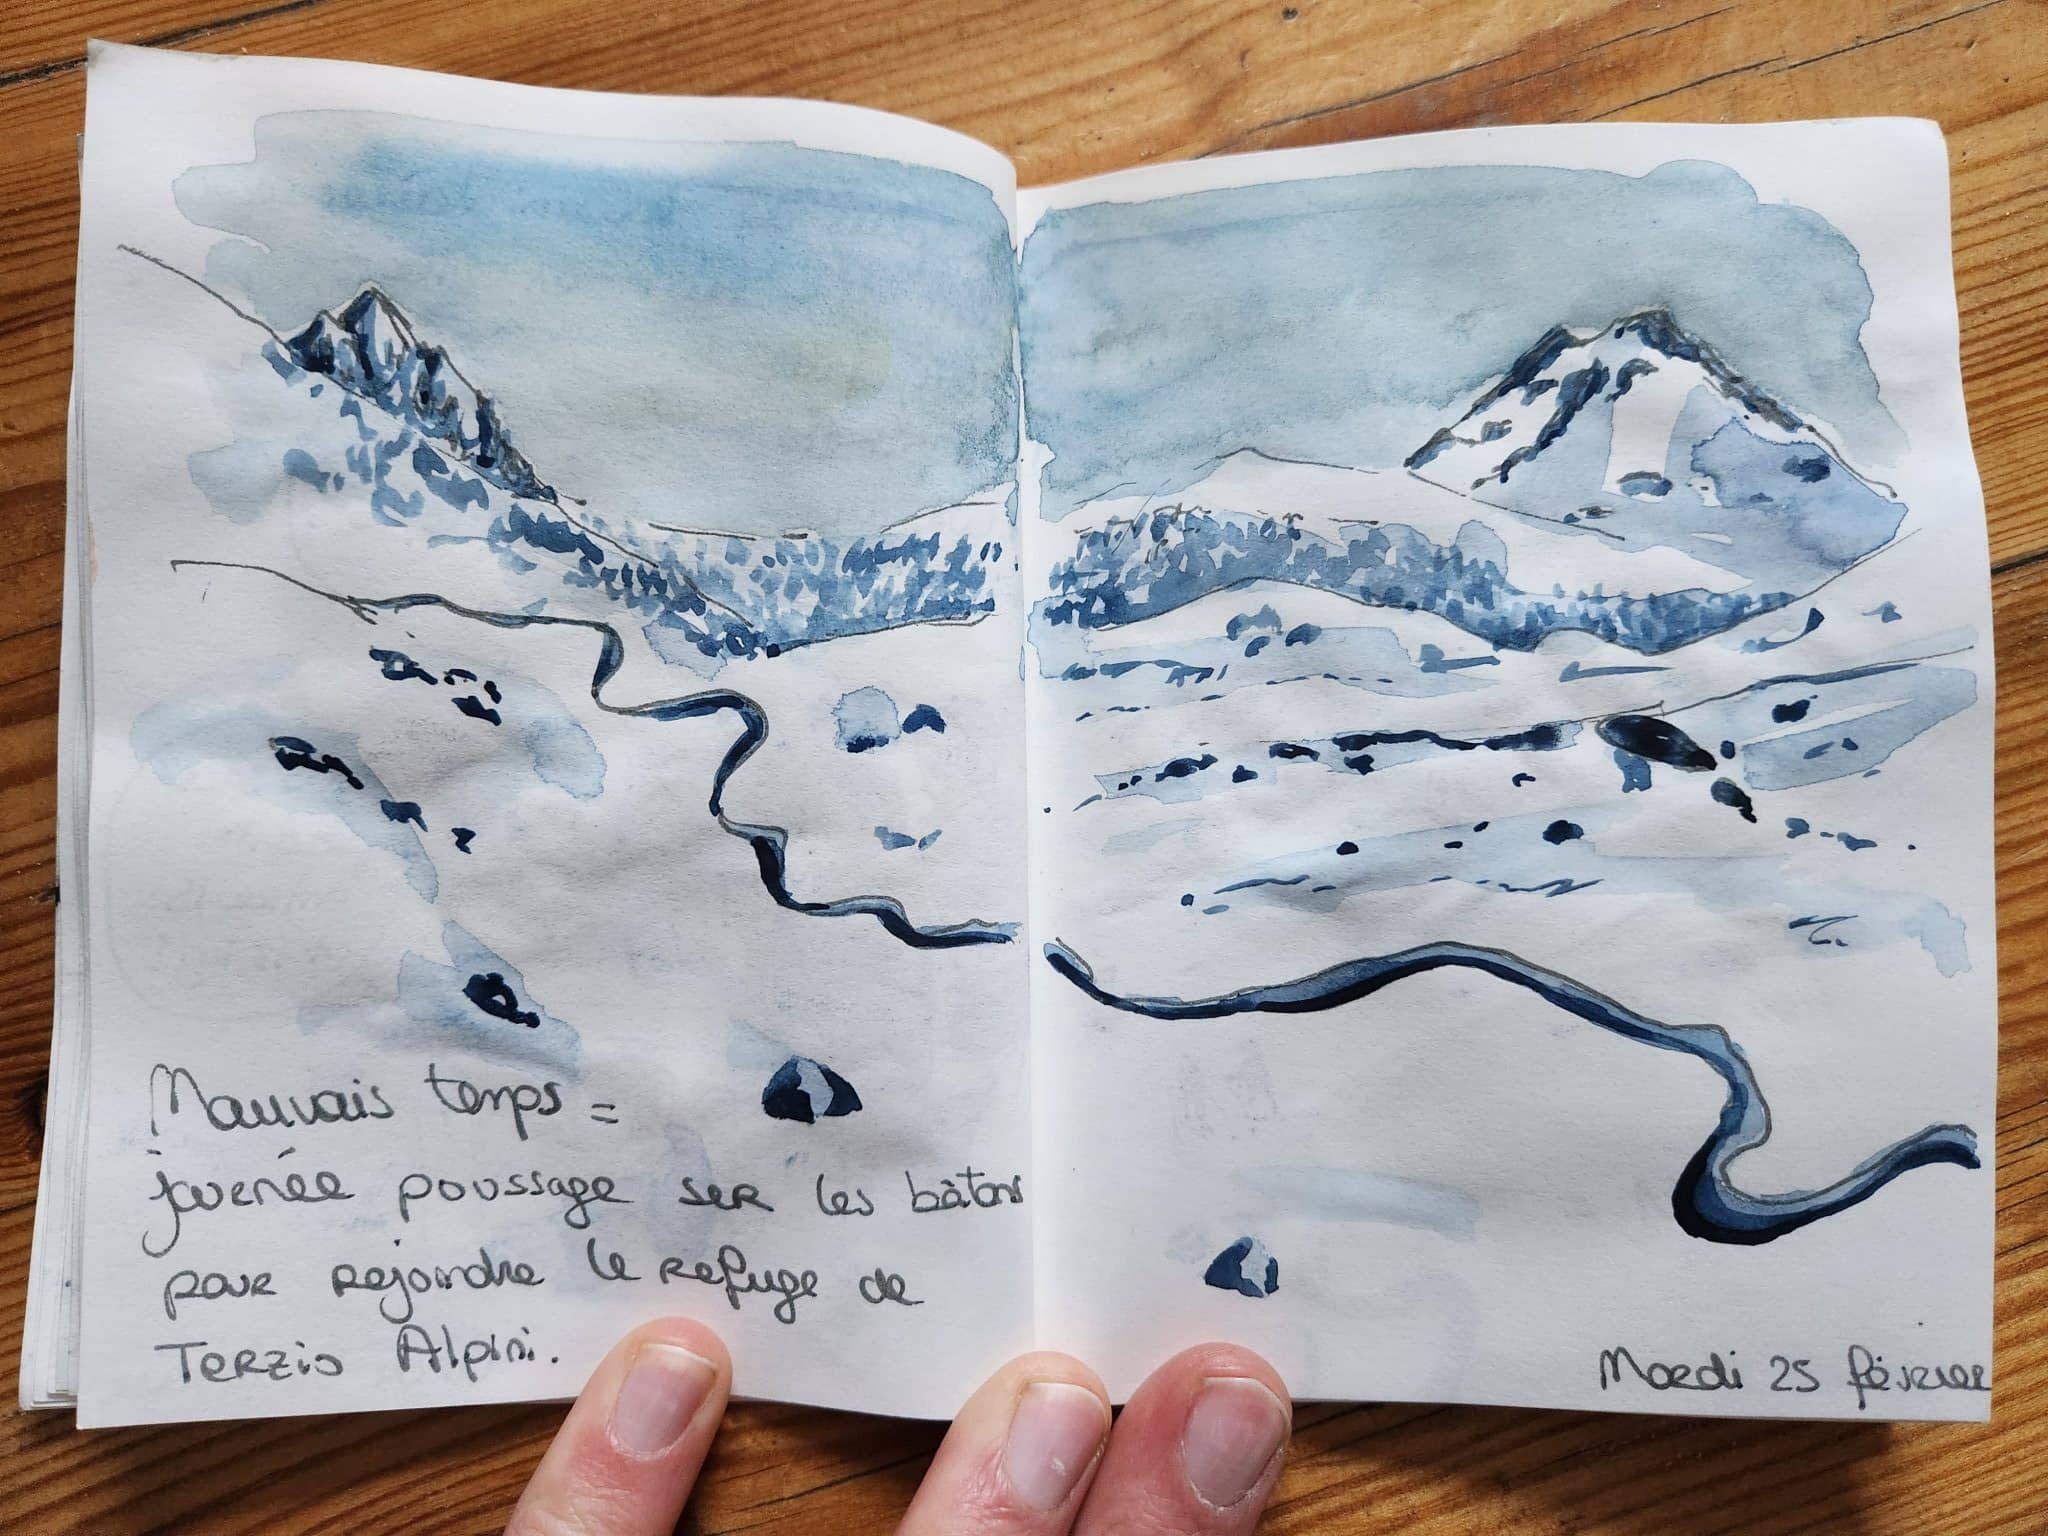 Mauvais temps =
journée poussage sur les bâtons
pour rejoindre le refuge de
Terzio Alpini.
Mardi 25 février